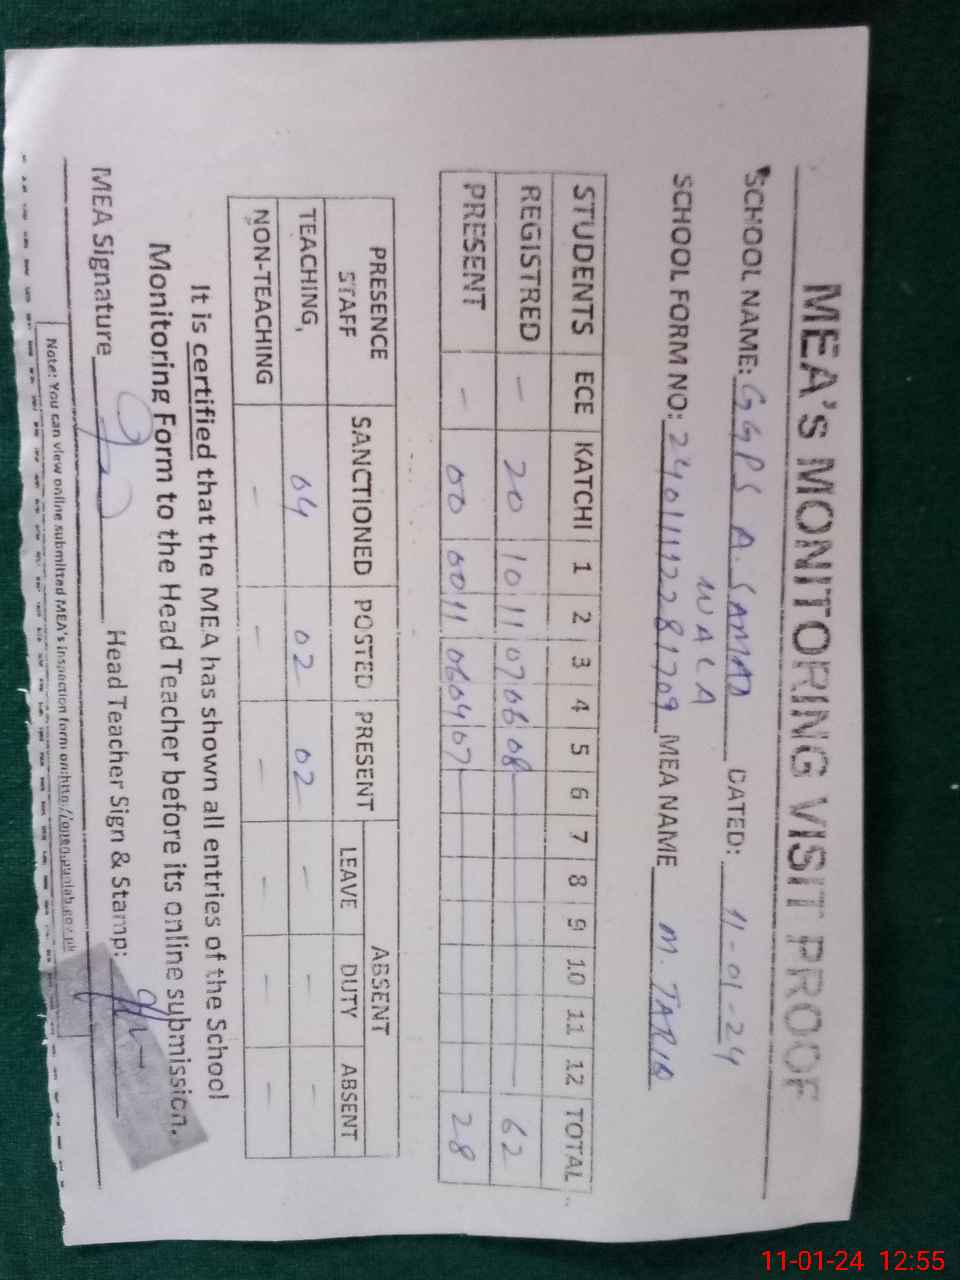 MEA'S MONITORING VISIT PROOF
SCHOOL NAME: GGPS A. SAMAD DATED: 11-01-24
WALA
SCHOOL FORM NO: MEA NAME M. TARIQ
STUDENTS ECE KATCHI 1 2 3 4 5 6 7 8 9 10 11 12 TOTAL
REGISTRED - 20 10 11 07 06 08 62
PRESENT - 00 00 11 06 04 07 28
PRESENCE STAFF SANCTIONED POSTED PRESENT ABSENT
LEAVE DUTY ABSENT
TEACHING, 04 02 02 - - -
NON-TEACHING - - - - - -
It is certified that the MEA has shown all entries of the School
Monitoring Form to the Head Teacher before its online submission.
MEA Signature Head Teacher Sign & Stamp:
Note: You can view online submitted MEA's inspection form on:http://open.punjab.gov.pk
11-01-24 12:55